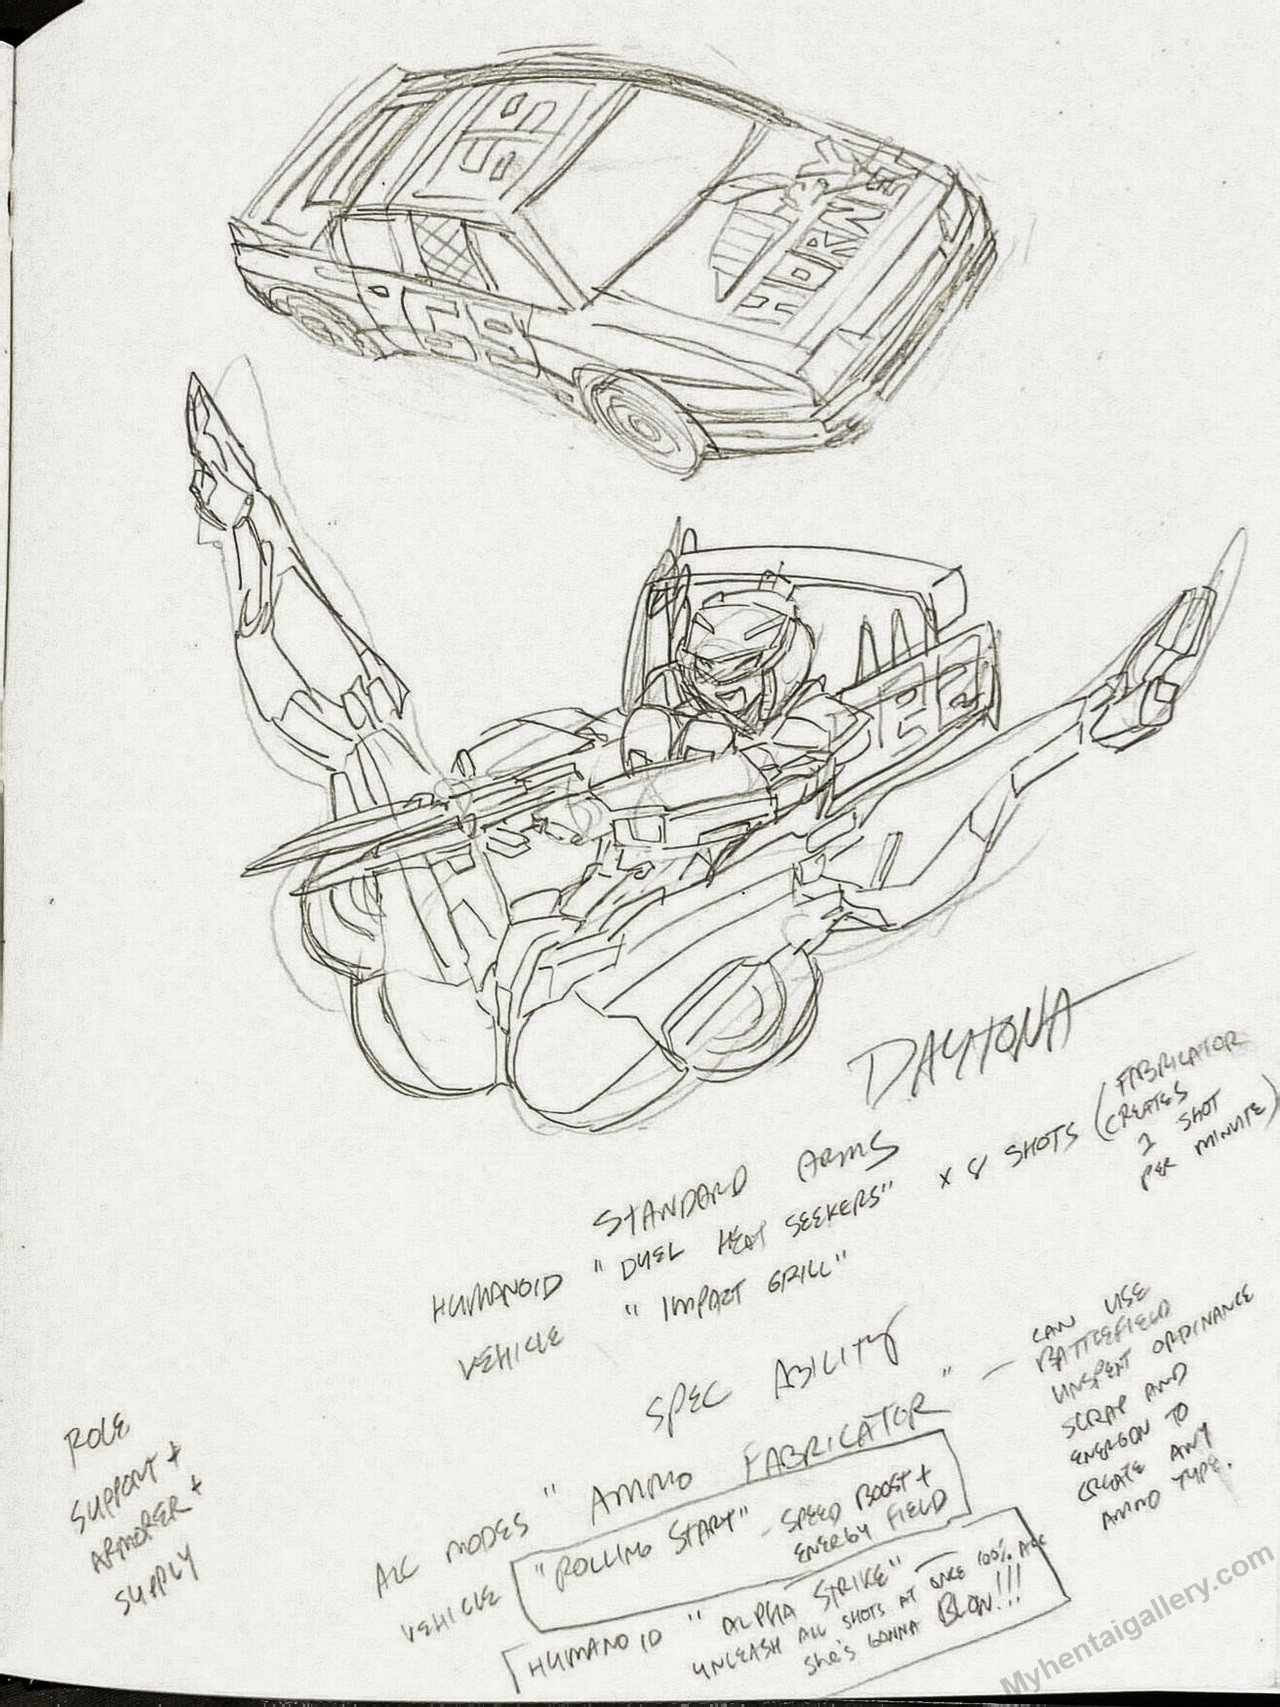 HORNET
69
DAYTONA
STANDARD ARMS
HUMANOID "DUEL HEAT SEEKERS" x 8 SHOTS (FABRICATOR
CREATES
1 SHOT
PER MINUTE)
VEHICLE "IMPACT GRILL"
SPEC ABILITY
ALL MODES "AMMO FABRICATOR" — CAN USE
BATTLEFIELD
UNSPENT ORDINANCE
SCRAP AND
ENERGON TO
CREATE ANY
AMMO TYPE.
VEHICLE "ROLLING START" - SPEED BOOST +
ENERGY FIELD
HUMANOID "ALPHA STRIKE" —
UNLEASH ALL SHOTS AT ONCE 100% ACC
She's GONNA BLOW!!!
ROLE
SUPPORT +
ARMORER +
SUPPLY
Myhentaigallery.com